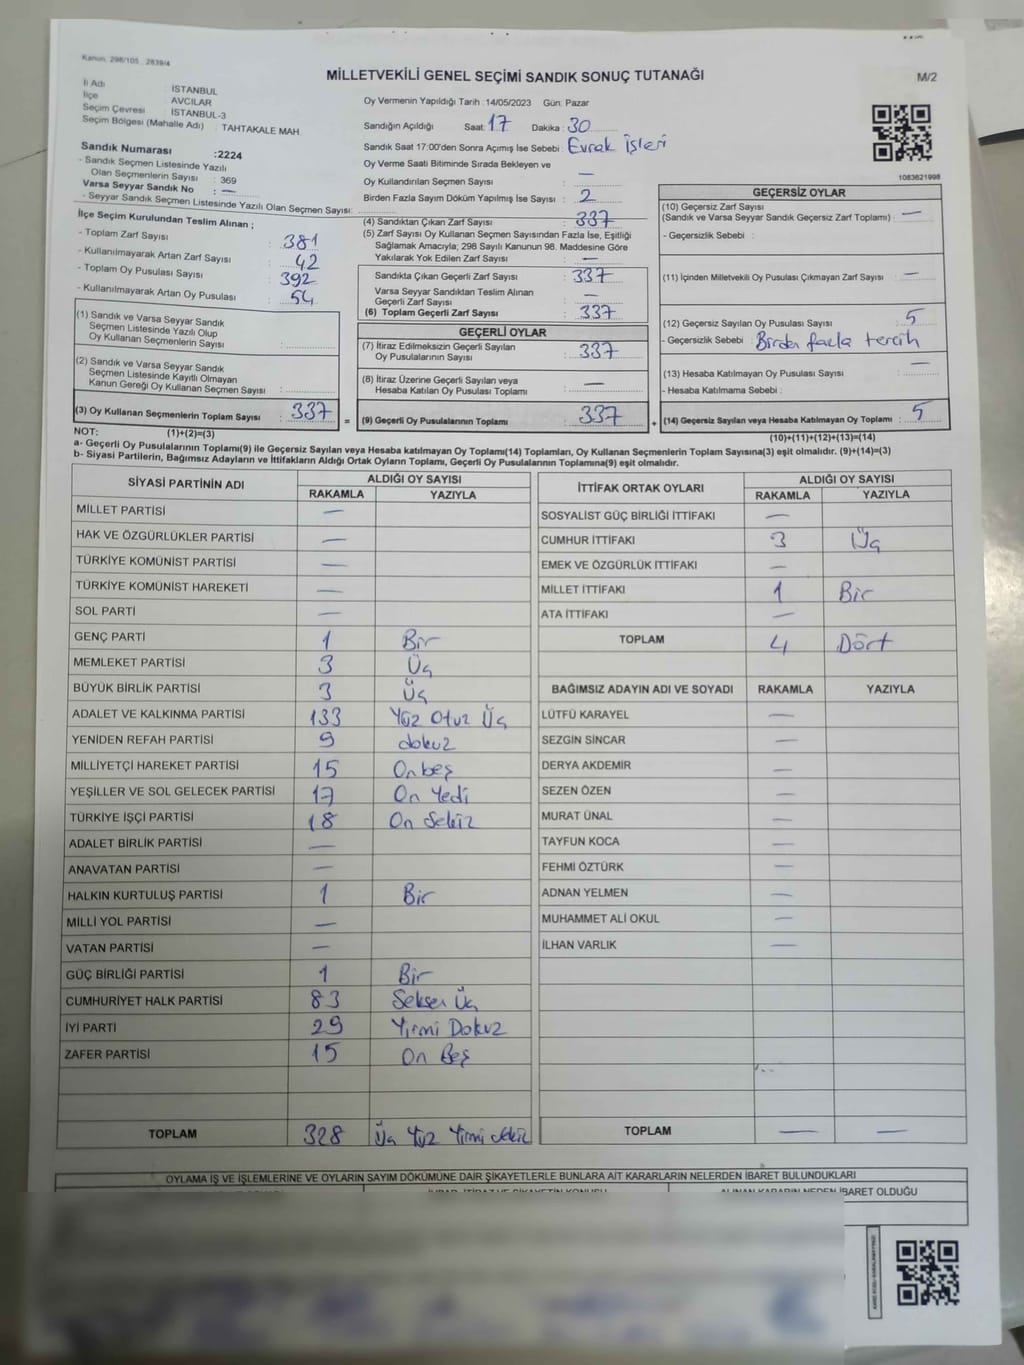 Kanun, 298/105 , 2839/4
MİLLETVEKİLİ GENEL SEÇİMİ SANDIK SONUÇ TUTANAĞI
M/2
İl Adı : İSTANBUL
İlçe : AVCILAR
Seçim Çevresi : İSTANBUL-3
Seçim Bölgesi (Mahalle Adı) : TAHTAKALE MAH.
Sandık Numarası :2224
- Sandık Seçmen Listesinde Yazılı
Olan Seçmenlerin Sayısı : 369
Varsa Seyyar Sandık No : —
- Seyyar Sandık Seçmen Listesinde Yazılı Olan Seçmen Sayısı:
İlçe Seçim Kurulundan Teslim Alınan ;
- Toplam Zarf Sayısı : 381
- Kullanılmayarak Artan Zarf Sayısı : 42
- Toplam Oy Pusulası Sayısı : 392
- Kullanılmayarak Artan Oy Pusulası : 54
(1) Sandık ve Varsa Seyyar Sandık
Seçmen Listesinde Yazılı Olup
Oy Kullanan Seçmenlerin Sayısı :
(2) Sandık ve Varsa Seyyar Sandık
Seçmen Listesinde Kayıtlı Olmayan
Kanun Gereği Oy Kullanan Seçmen Sayısı :
(3) Oy Kullanan Seçmenlerin Toplam Sayısı : 337
Oy Vermenin Yapıldığı Tarih :14/05/2023 Gün: Pazar
Sandığın Açıldığı Saat: 17 Dakika : 30
Sandık Saat 17:00'den Sonra Açımış İse Sebebi : Evrak işleri
Oy Verme Saati Bitiminde Sırada Bekleyen ve
Oy Kullandırılan Seçmen Sayısı : —
Birden Fazla Sayım Döküm Yapılmış İse Sayısı : 2
(4) Sandıktan Çıkan Zarf Sayısı : 337
(5) Zarf Sayısı Oy Kullanan Seçmen Sayısından Fazla İse, Eşitliği
Sağlamak Amacıyla; 298 Sayılı Kanunun 98. Maddesine Göre
Yakılarak Yok Edilen Zarf Sayısı : —
Sandıkta Çıkan Geçerli Zarf Sayısı : 337
Varsa Seyyar Sandıktan Teslim Alınan
Geçerli Zarf Sayısı : —
(6) Toplam Geçerli Zarf Sayısı : 337
GEÇERLİ OYLAR
(7) İtiraz Edilmeksizin Geçerli Sayılan
Oy Pusulalarının Sayısı : 337
(8) İtiraz Üzerine Geçerli Sayılan veya
Hesaba Katılan Oy Pusulası Toplamı : —
= (9) Geçerli Oy Pusulalarının Toplamı : 337
1083621998
GEÇERSİZ OYLAR
(10) Geçersiz Zarf Sayısı
(Sandık ve Varsa Seyyar Sandık Geçersiz Zarf Toplamı) : —
- Geçersizlik Sebebi :
(11) İçinden Milletvekili Oy Pusulası Çıkmayan Zarf Sayısı : —
(12) Geçersiz Sayılan Oy Pusulası Sayısı : 5
- Geçersizlik Sebebi : Birden fazla tercih
(13) Hesaba Katılmayan Oy Pusulası Sayısı : —
- Hesaba Katılmama Sebebi :
+ (14) Geçersiz Sayılan veya Hesaba Katılmayan Oy Toplamı : 5
NOT: (1)+(2)=(3)
(10)+(11)+(12)+(13)=(14)
a- Geçerli Oy Pusulalarının Toplamı(9) ile Geçersiz Sayılan veya Hesaba katılmayan Oy Toplamı(14) Toplamları, Oy Kullanan Seçmenlerin Toplam Sayısına(3) eşit olmalıdır. (9)+(14)=(3)
b- Siyasi Partilerin, Bağımsız Adayların ve İttifakların Aldığı Ortak Oyların Toplamı, Geçerli Oy Pusulalarının Toplamına(9) eşit olmalıdır.
SİYASİ PARTİNİN ADI ALDIĞI OY SAYISI
RAKAMLA YAZIYLA
MİLLET PARTİSİ —
HAK VE ÖZGÜRLÜKLER PARTİSİ —
TÜRKİYE KOMÜNİST PARTİSİ —
TÜRKİYE KOMÜNİST HAREKETİ —
SOL PARTİ —
GENÇ PARTİ 1 Bir
MEMLEKET PARTİSİ 3 Üç
BÜYÜK BİRLİK PARTİSİ 3 Üç
ADALET VE KALKINMA PARTİSİ 133 Yüz Otuz Üç
YENİDEN REFAH PARTİSİ 9 dokuz
MİLLİYETÇİ HAREKET PARTİSİ 15 Onbeş
YEŞİLLER VE SOL GELECEK PARTİSİ 17 On Yedi
TÜRKİYE İŞÇİ PARTİSİ 18 On Sekiz
ADALET BİRLİK PARTİSİ —
ANAVATAN PARTİSİ —
HALKIN KURTULUŞ PARTİSİ 1 Bir
MİLLİ YOL PARTİSİ —
VATAN PARTİSİ —
GÜÇ BİRLİĞİ PARTİSİ 1 Bir
CUMHURİYET HALK PARTİSİ 83 Seksen Üç
İYİ PARTİ 29 Yirmi Dokuz
ZAFER PARTİSİ 15 On Beş
TOPLAM 328 Üç Yüz Yirmi sekiz
İTTİFAK ORTAK OYLARI ALDIĞI OY SAYISI
RAKAMLA YAZIYLA
SOSYALİST GÜÇ BİRLİĞİ İTTİFAKI —
CUMHUR İTTİFAKI 3 Üç
EMEK VE ÖZGÜRLÜK İTTİFAKI —
MİLLET İTTİFAKI 1 Bir
ATA İTTİFAKI —
TOPLAM 4 Dört
BAĞIMSIZ ADAYIN ADI VE SOYADI RAKAMLA YAZIYLA
LÜTFÜ KARAYEL —
SEZGİN SİNCAR —
DERYA AKDEMİR —
SEZEN ÖZEN —
MURAT ÜNAL —
TAYFUN KOCA —
FEHMİ ÖZTÜRK —
ADNAN YELMEN —
MUHAMMET ALİ OKUL —
İLHAN VARLIK —
TOPLAM — —
OYLAMA İŞ VE İŞLEMLERİNE VE OYLARIN SAYIM DÖKÜMÜNE DAİR ŞİKAYETLERLE BUNLARA AİT KARARLARIN NELERDEN İBARET BULUNDUKLARI
ALINAN KARARIN NEDEN İBARET OLDUĞU